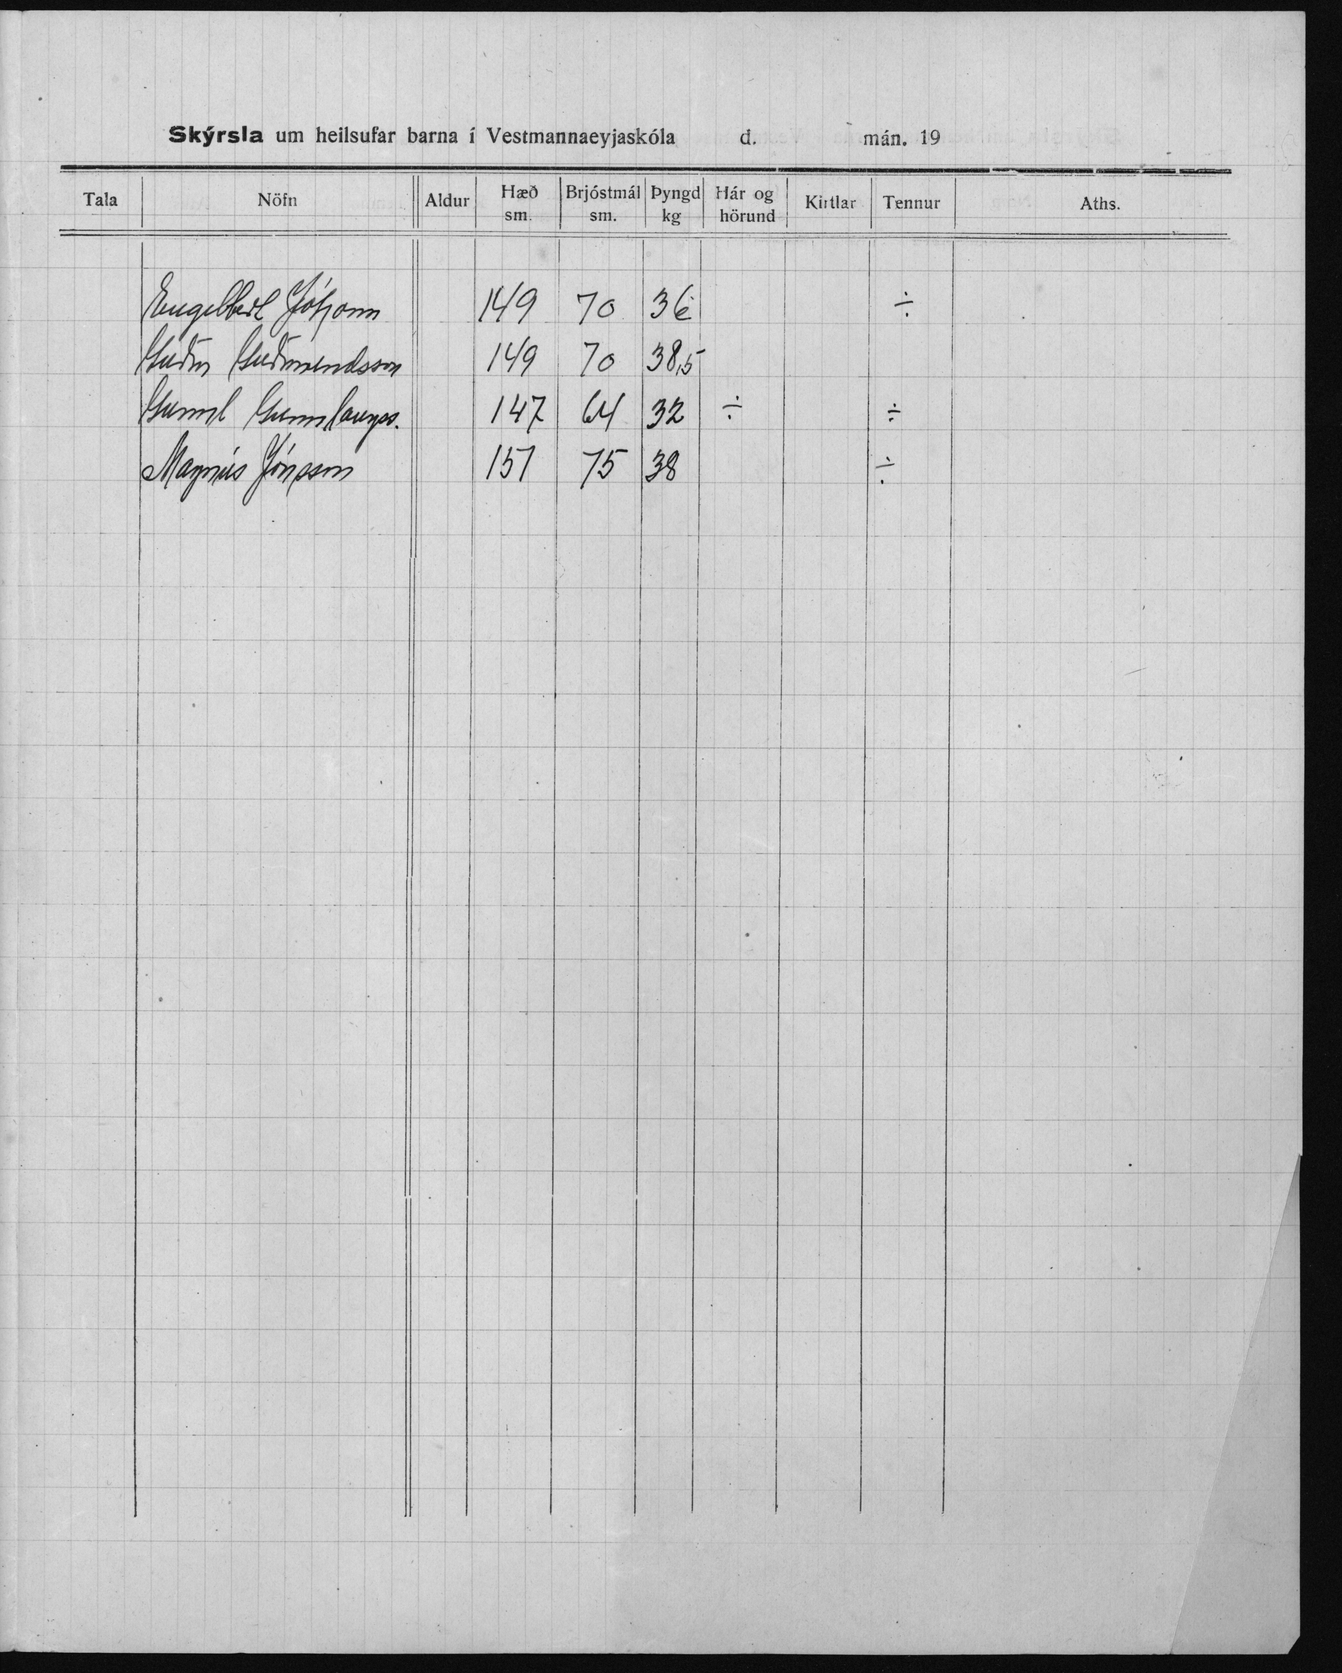 Skýrsla um heilsufar barna í Vestmannaeyjaskóla d. mán. 19
Tala Nöfn Aldur Hæð sm. Brjóstmál sm. Þyngd kg Hár og hörund Kirtlar Tennur Aths.
Engilbert Jóhann 149 70 36 ÷
Guðm Guðmundsson 149 70 38,5
Gunnl Gunnlaugss. 147 64 32 ÷ ÷
Magnús Jónsson 151 75 38 ÷